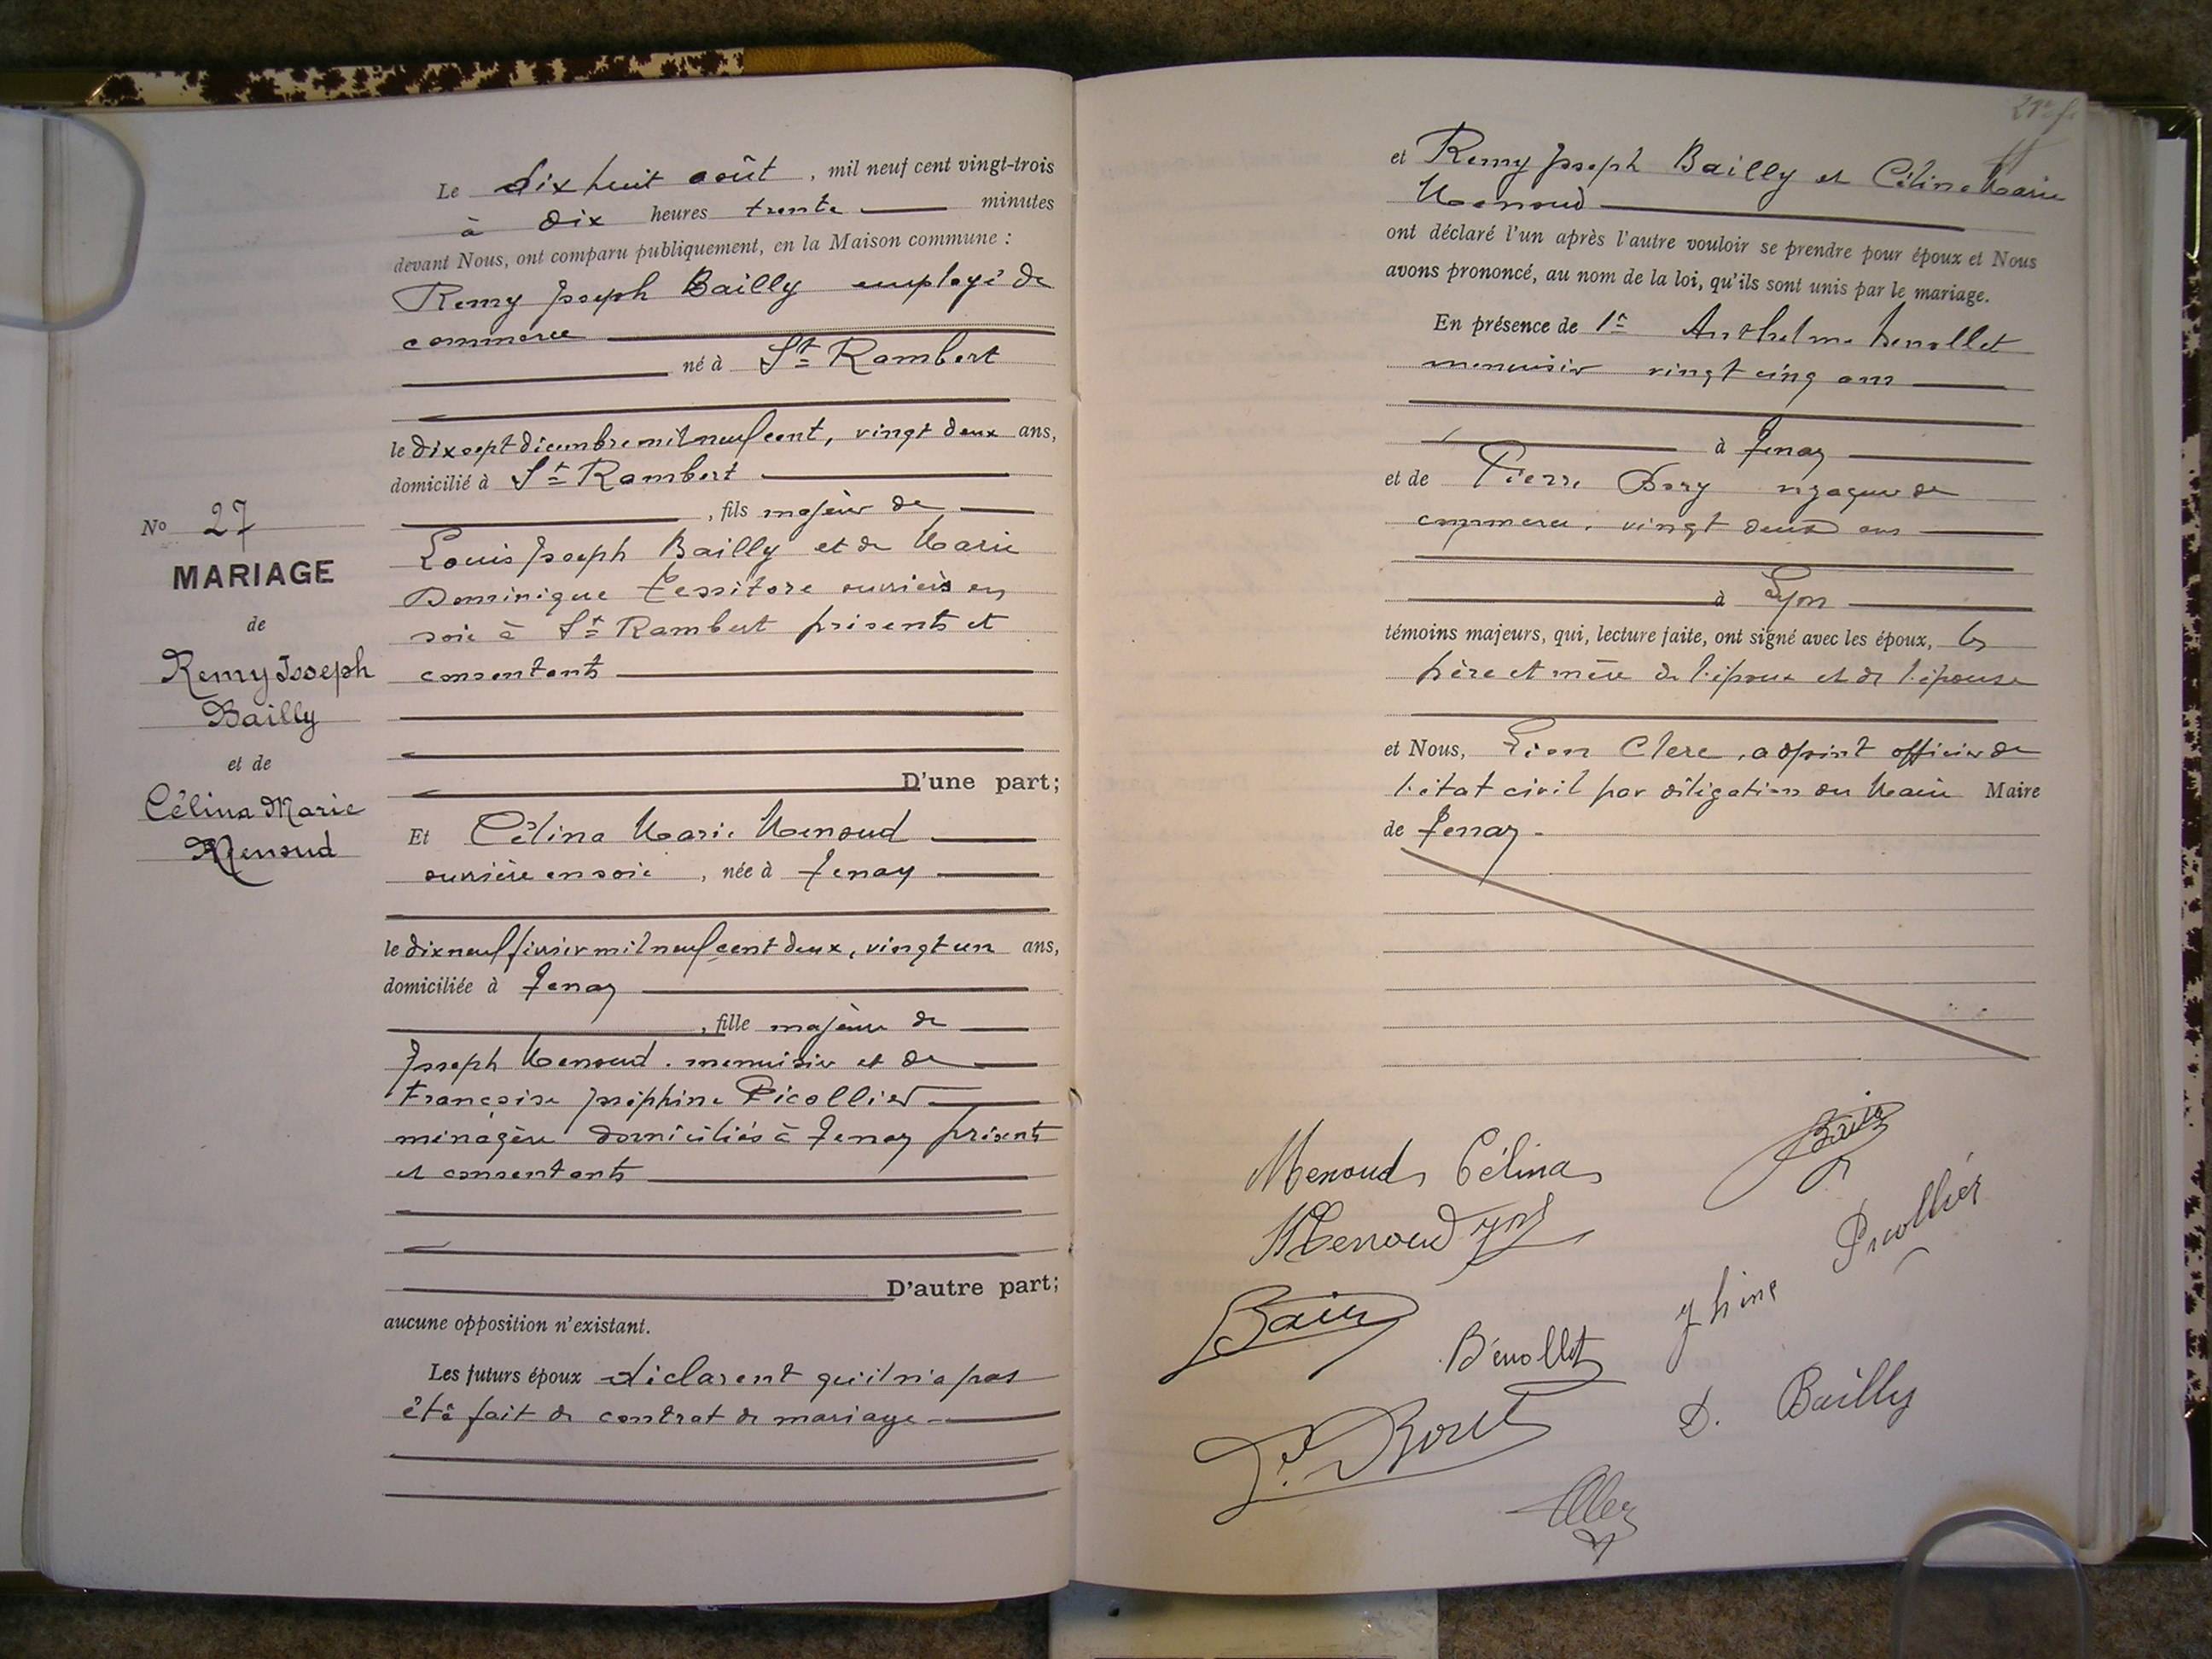 Le dix huit août, mil neuf cent vingt-trois
à dix heures trente minutes
devant Nous, ont comparu publiquement, en la Maison commune :
Remy Joseph Bailly employé de
commerce
né à St Rambert
le dix sept décembre mil neuf cent, vingt deux ans,
domicilié à St Rambert
, fils majeur de
Louis Joseph Bailly et de Marie
Dominique Tessitore ouvriers en
soie à St Rambert présents et
consentants
D'une part;
No 27
MARIAGE
de
Remy Joseph
Bailly
et de
Célina Marie
Menoud
Et Célina Marie Menoud
ouvrière en soie, née à Tenay
le dix neuf février mil neuf cent deux, vingt un ans,
domiciliée à Tenay
, fille majeure de
Joseph Menoud. menuisier et de
Françoise Joséphine Picollier
ménagère domiciliés à Tenay présents
et consentants
D'autre part;
aucune opposition n'existant.
Les futurs époux déclarent qu'il n'a pas
été fait de contrat de mariage -
et Remy Joseph Bailly et Célina Marie
Menoud
ont déclaré l'un après l'autre vouloir se prendre pour époux et Nous
avons prononcé, au nom de la loi, qu'ils sont unis par le mariage.
En présence de 1e Anthelme Benollet
menuisier vingt cinq ans
à Tenay
et de Pierre voyageur de
commerce, vingt deux ans
à Lyon
témoins majeurs, qui, lecture faite, ont signé avec les époux, les
père et mère de l'époux et de l'épouse
et Nous, Léon Clerc, adjoint officier de
l'état civil par délégation du Maire Maire
de Tenay -
Menoud Célina
Menoud
Picollier
Bénollet
D. Bailly